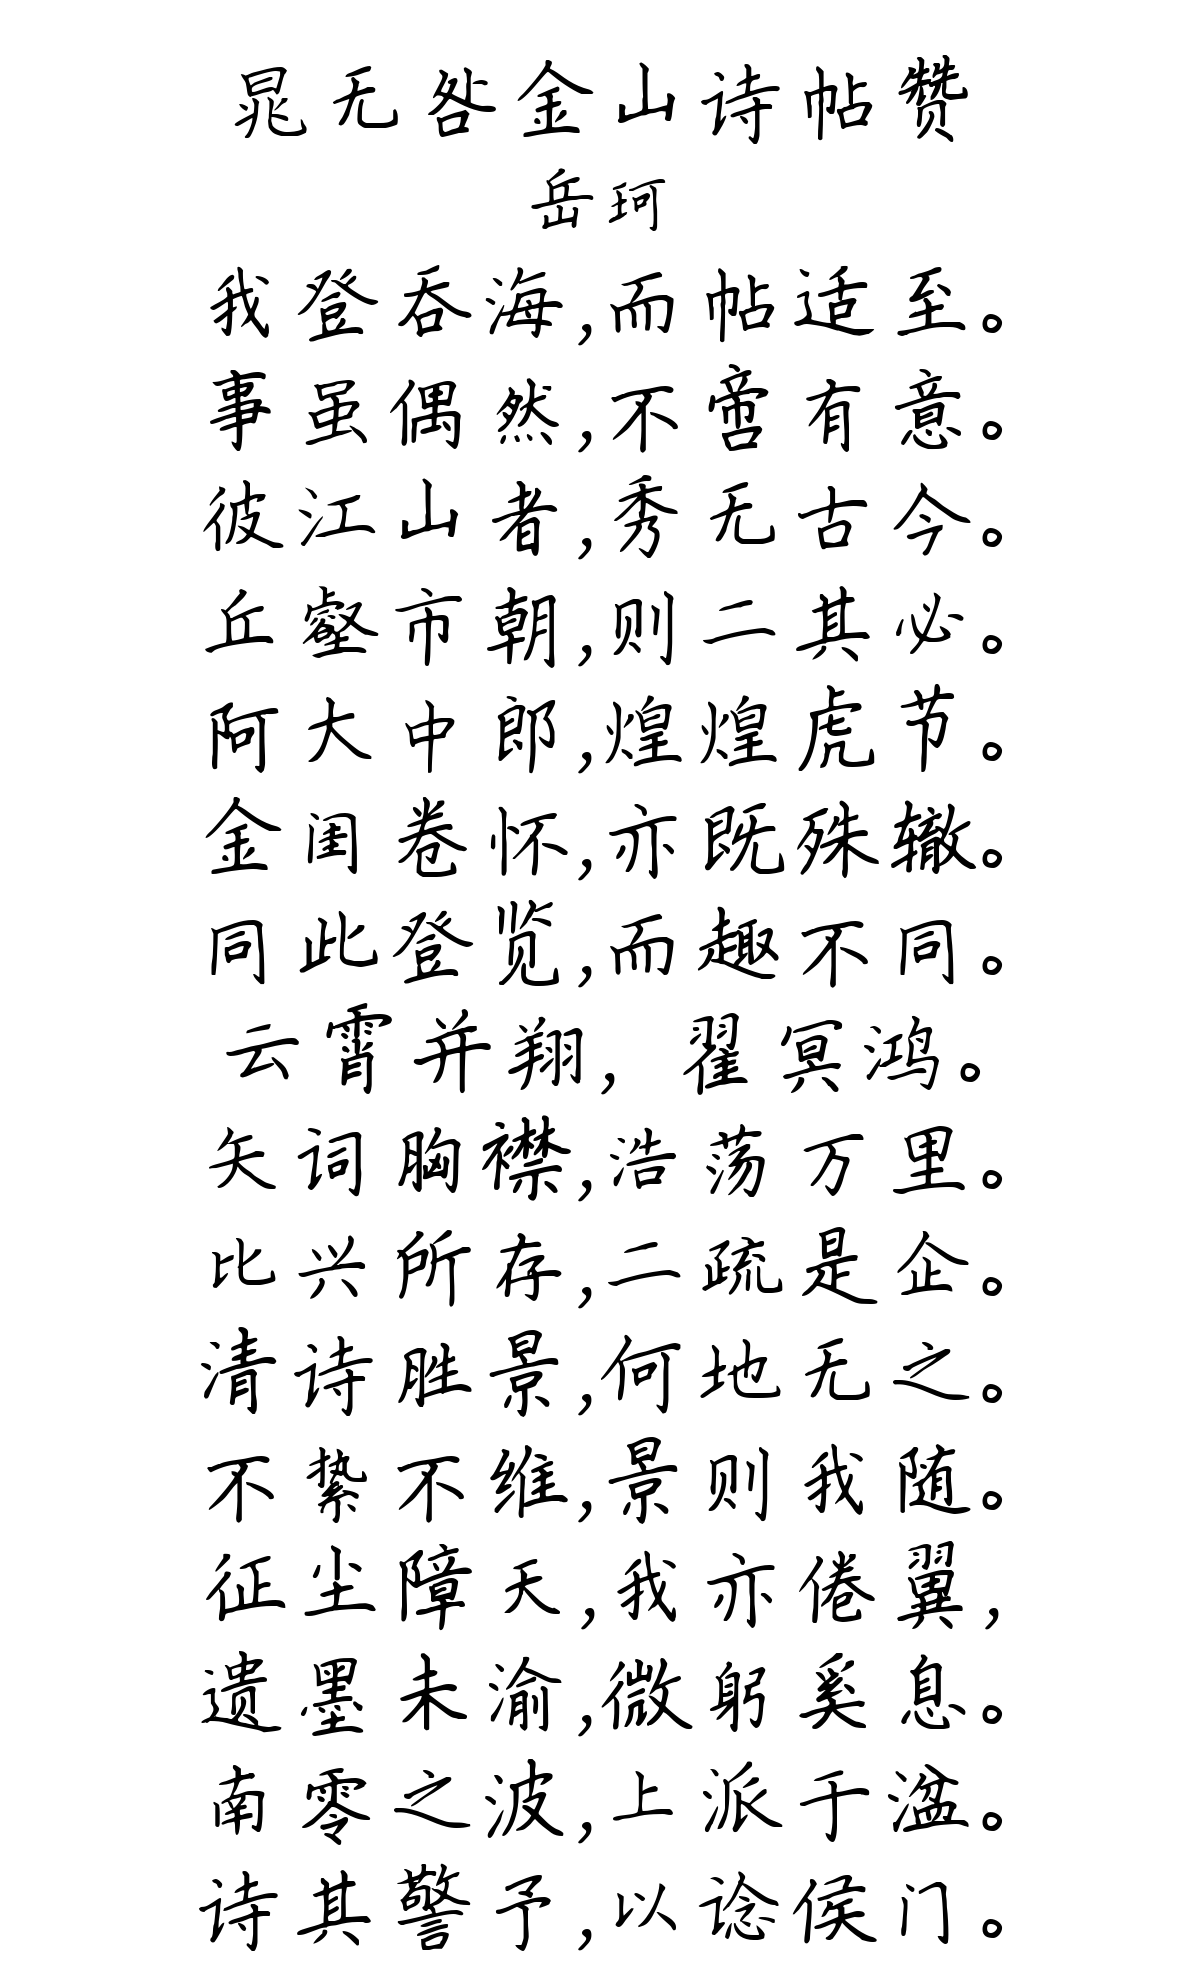 晁无咎金山诗帖赞
岳珂
我登吞海,而帖适至。
事虽偶然,不啻有意。
彼江山者,秀无古今。
丘壑市朝,则二其必。
阿大中郎,煌煌虎节。
金闺卷怀,亦既殊辙。
同此登览,而趣不同。
云霄并翔,翟冥鸿。
矢词胸襟,浩荡万里。
比兴所存,二疏是企。
清诗胜景,何地无之。
不絷不维,景则我随。
征尘障天,我亦倦翼,
遗墨未渝,微躬奚息。
南零之波,上派于湓。
诗其警予,以谂侯门。